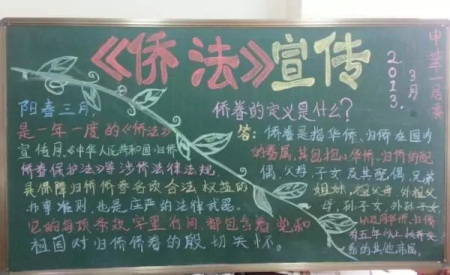 《侨法》宣传
2013.3月
阳春三月，
是一年一度的《侨法》
宣传月。《中华人民共和国归侨
侨眷保护法》等涉侨法律法规，
是保障归侨侨眷各项合法权益的
办事准则，也是庄严的法律武器。
它的每项条款字里行间都包含着党和
祖国对归侨侨眷的殷切关怀。
侨眷的定义是什么？
答：侨眷是指华侨、归侨在国内
的眷属，其包括：华侨、归侨的配
偶，父母，子女及其配偶，兄弟
姐妹，祖父母，外祖父
母，孙子女，外孙子女，
以及同华侨、归侨
有五年以上扶养关
系的其他亲属。